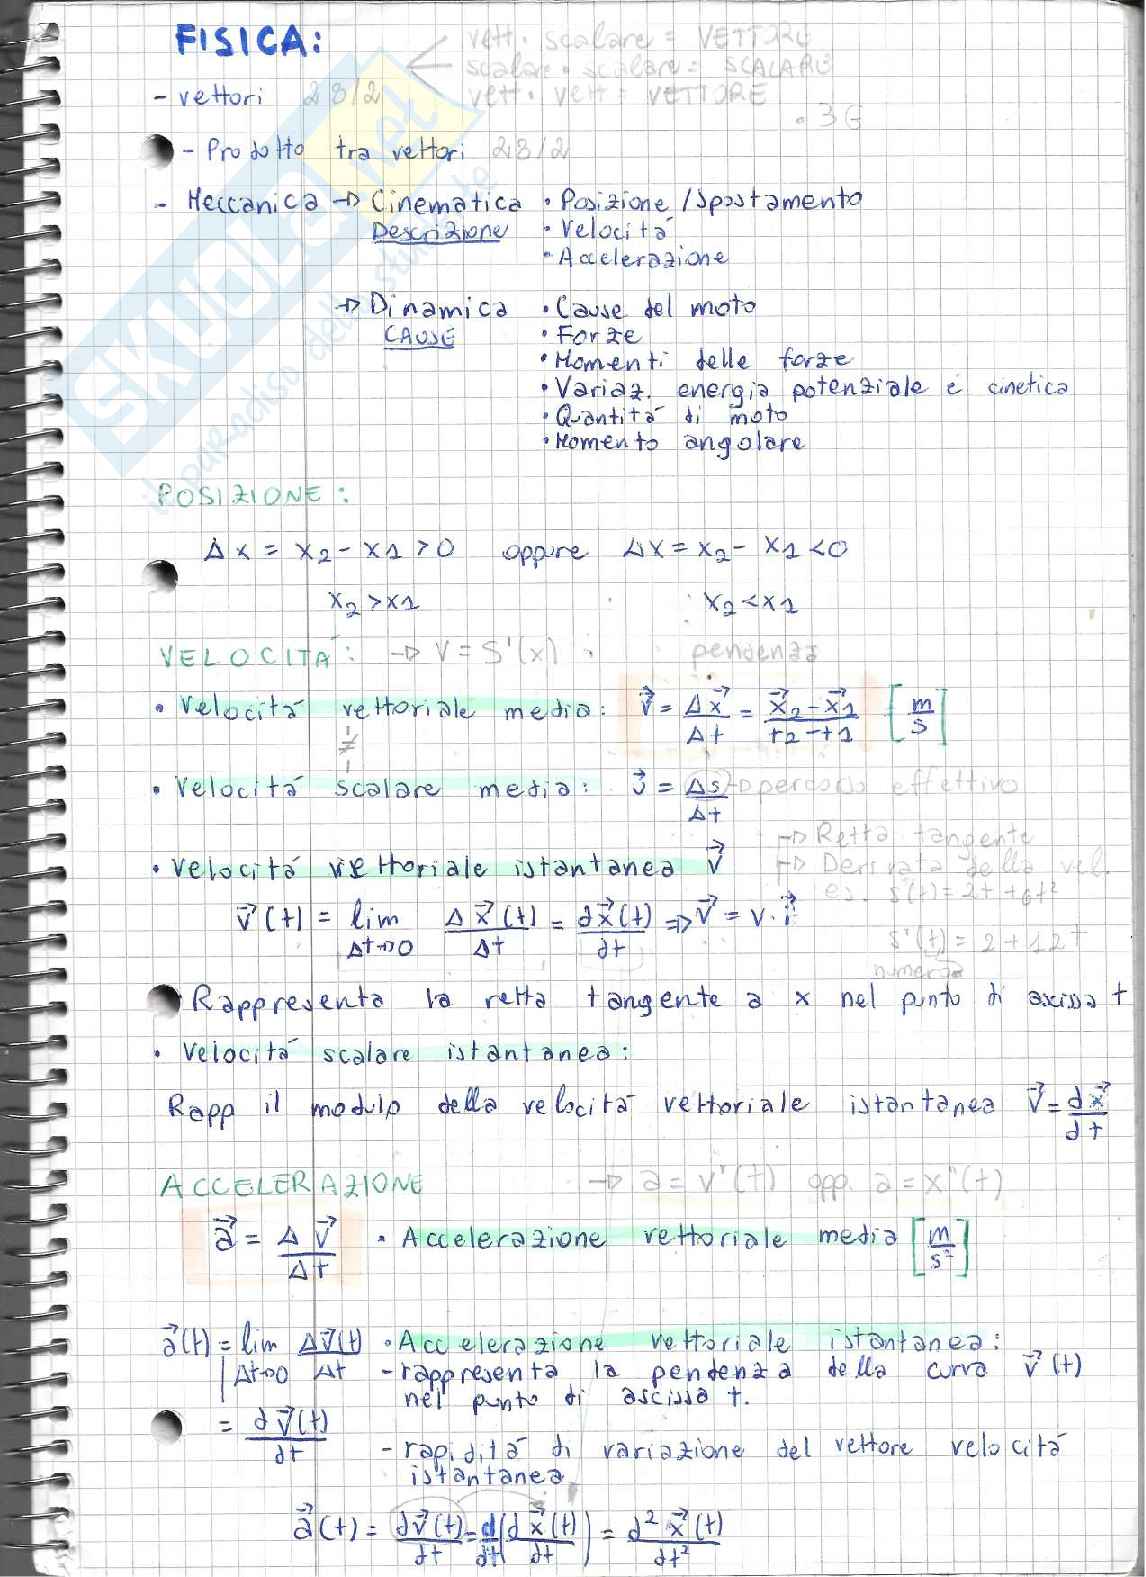 FISICA:
vett. scalare = VETTORE
scalar • scalare = SCALARE
vett • vett = VETTORE
- vettori 28/2
• 3G
- Prodotto tra vettori 28/2
- Meccanica → Cinematica • Posizione / Spostamento
Descrizione • Velocità
• Accelerazione
→ Dinamica • Cause del moto
CAUSE • Forze
• Momenti delle forze
• Variaz. energia potenziale e cinetica
• Quantità di moto
• Momento angolare
POSIZIONE:
Δx = x2 - x1 > 0 oppure Δx = x2 - x1 < 0
x2 > x1 x2 < x1
VELOCITÀ: → V = S'(x) pendenza
• Velocità vettoriale media: v⃗ = Δx⃗/Δt = (x⃗2 - x⃗1)/(t2 - t1) [m/s]
≠
• Velocità scalare media: v⃗ = Δs/Δt → percorso effettivo
→ Retta tangente
• Velocità vettoriale istantanea v⃗ → Derivata della vel.
es. s(t) = 2t + 6t²
v⃗(t) = lim Δt→0 Δx⃗(t)/Δt = dx⃗(t)/dt ⇒ v⃗ = v · i⃗
s'(t) = 2 + 12t
Rappresenta la retta tangente a x nel punto di ascissa t
• Velocità scalare istantanea:
Rapp il modulo della velocità vettoriale istantanea v⃗ = dx⃗/dt
ACCELERAZIONE → a = v'(t) opp. a = x''(t)
a⃗ = Δv⃗/Δt • Accelerazione vettoriale media [m/s²]
a⃗(t) = lim Δt→0 Δv⃗(t)/Δt • Accelerazione vettoriale istantanea:
- rappresenta la pendenza della curva v⃗(t)
nel punto di ascissa t.
= dv⃗(t)/dt
- rapidità di variazione del vettore velocità
istantanea
a⃗(t) = dv⃗(t)/dt = d/dt (dx⃗(t)/dt) = d²x⃗(t)/dt²
SKUOLA.net